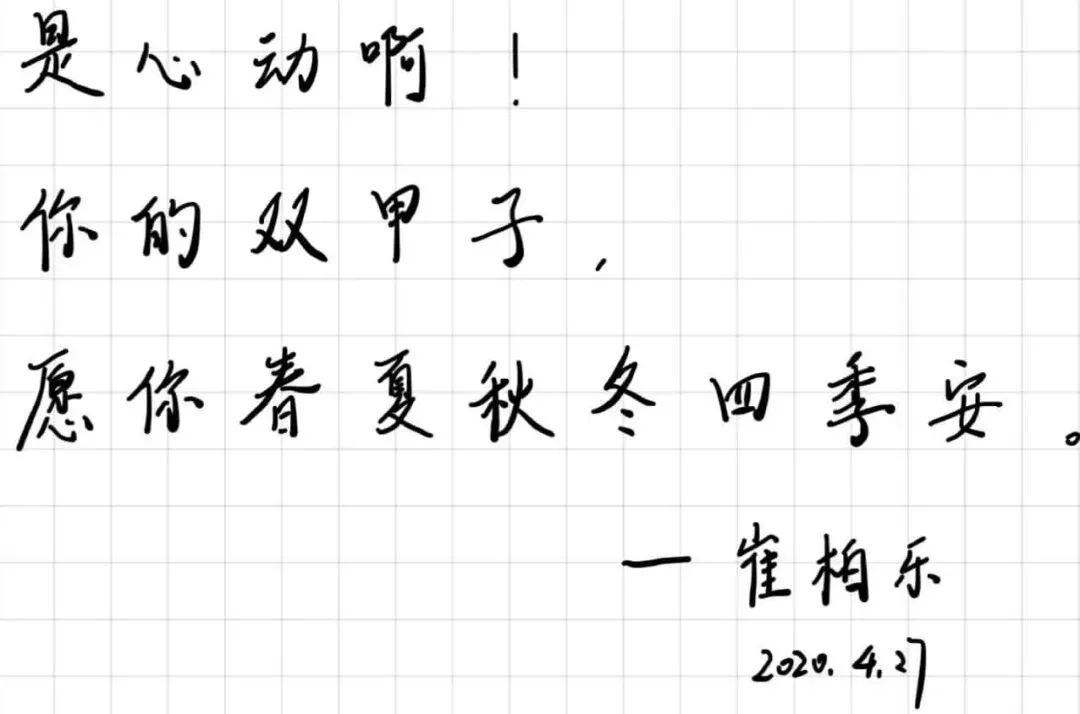 是心动啊！
你的双甲子，
愿你春夏秋冬四季安。
—崔柏乐
2020.4.27